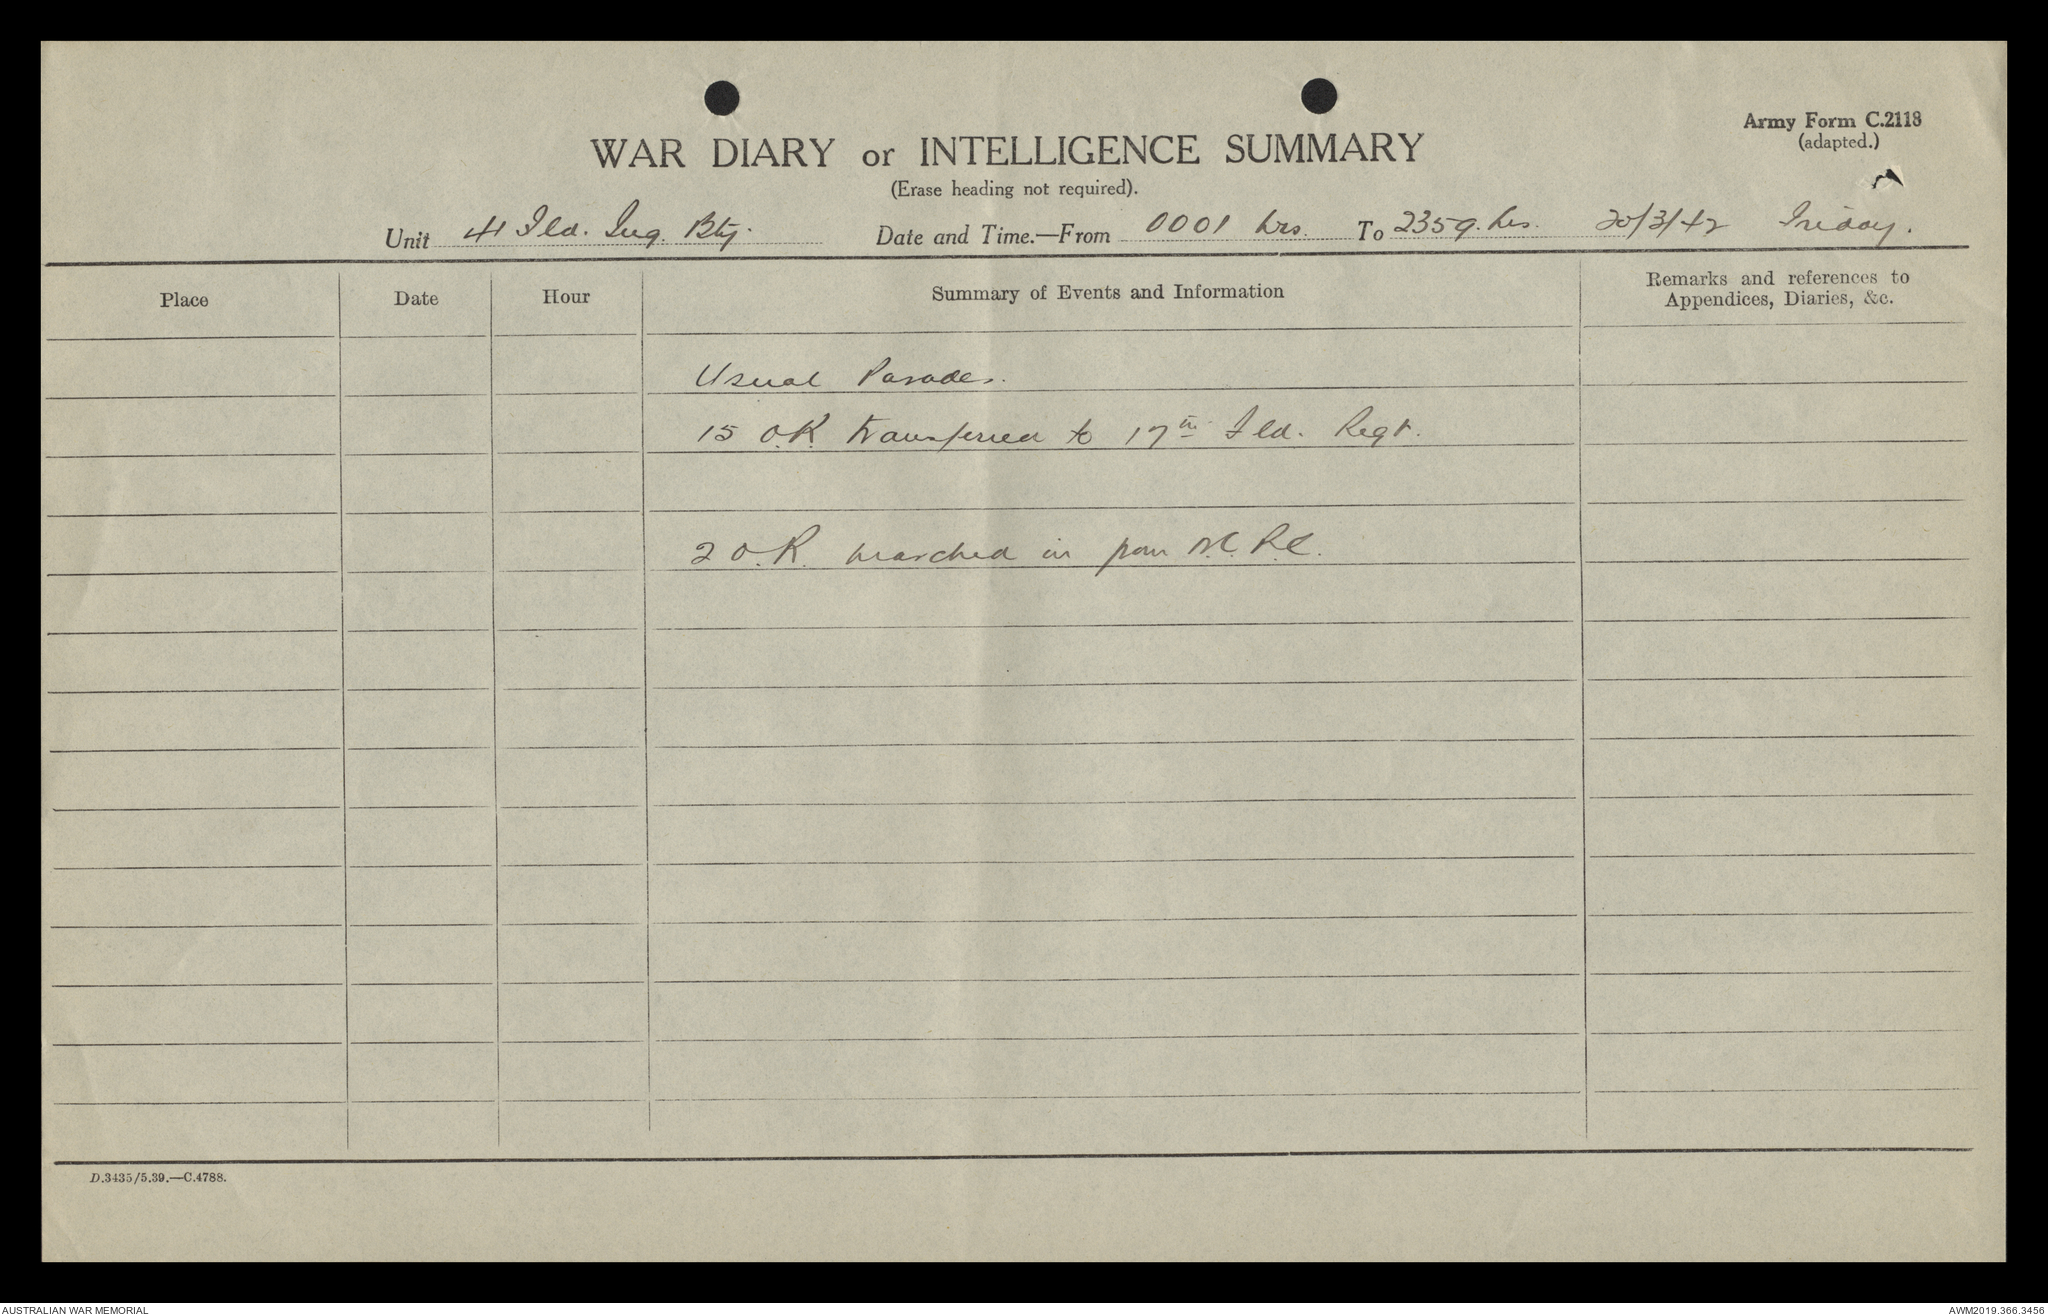 Army Form C.2118
(adapted.)
WAR DIARY or INTELLIGENCE SUMMARY
(Erase heading not required).
Unit 41 Fld. Trg. Bty. Date and Time.—From 0001 hrs. To 2359. hrs. 20/3/42 Friday.
Place Date Hour Summary of Events and Information Remarks and references to
Appendices, Diaries, &c.
Usual Parades.
15 O.R. transferred to 17th Fld. Regt.
2 O.R. marched in from R.C.
D.3435/5.39.—C.4788.
AUSTRALIAN WAR MEMORIAL
AWM2019.366.3456